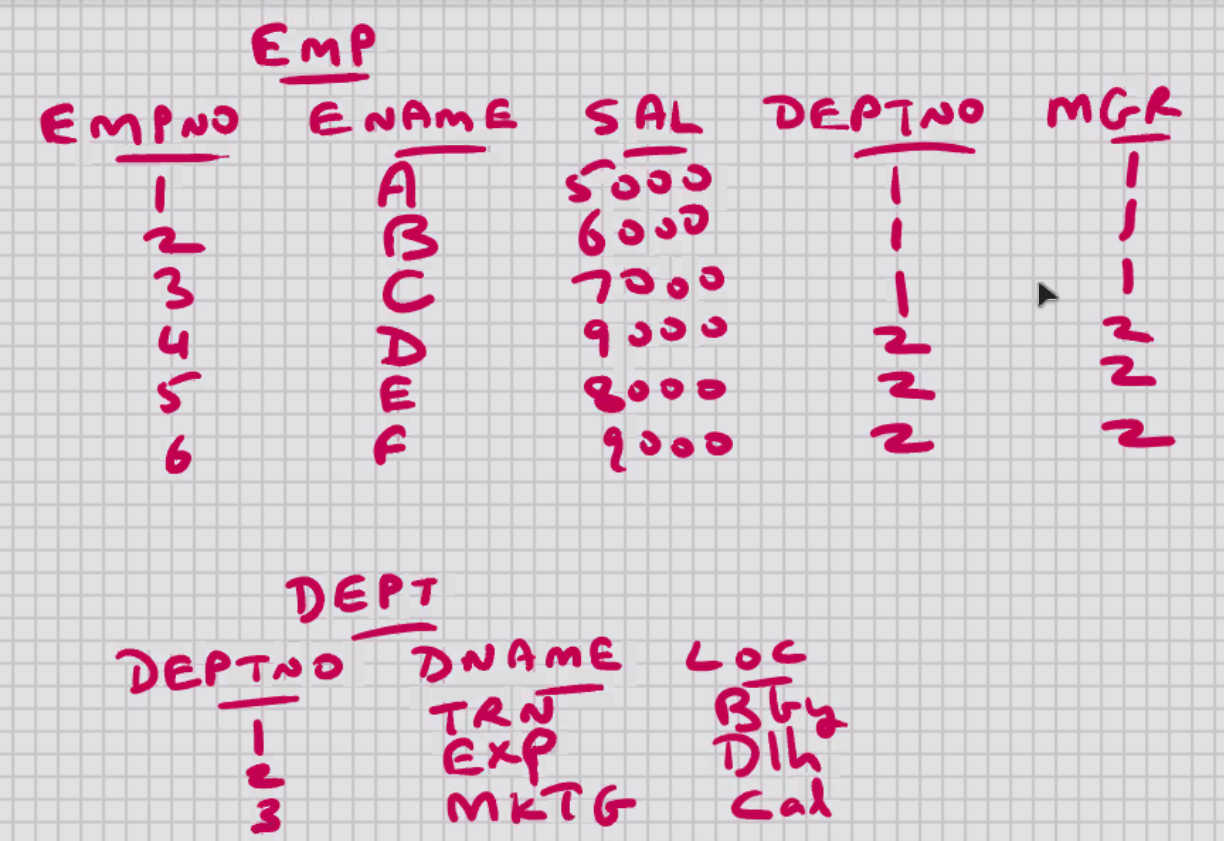 EMP
EMPNO ENAME SAL DEPTNO MGR
1 A 5000 1 1
2 B 6000 1 1
3 C 7000 1 1
4 D 9000 2 2
5 E 8000 2 2
6 F 9000 2 2
DEPT
DEPTNO DNAME LOC
1 TRN Bby
2 EXP Dlh
3 MKTG Cal